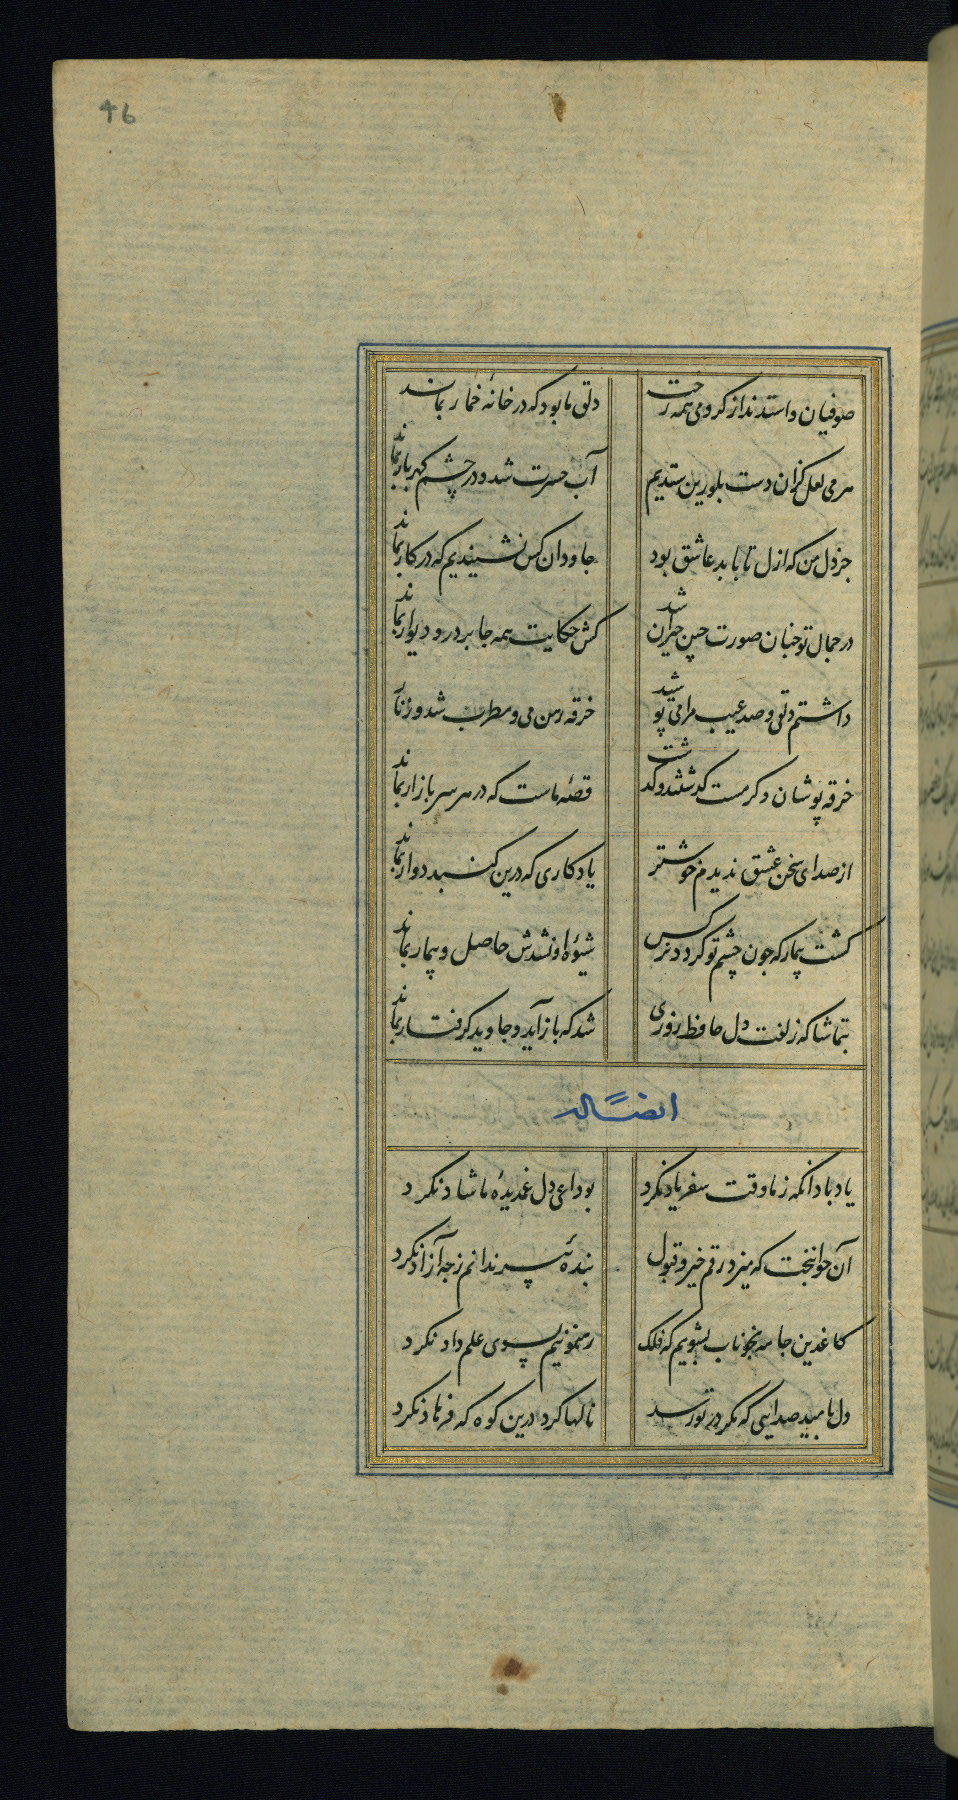 46
صوفیان واستدند از کرو می همه رخت دلق ما بود که در خانهٔ خمار بماند
هر می لعل کزان دست بلورین ستدیم آب حسرت شد و در چشم کهربار بماند
جز دل من که ازل تا بابد عاشق بود جاودان کس نشنیدیم که در کار بماند
در جمال تو چنان صورت چین حیران شد کش حکایت همه جا بر در و دیوار بماند
داشتم دلقی و صد عیب مرا می پوشید خرقه رهن می و مطرب شد و زنار
خرقه پوشان دکر مست کذشتند و کذشت قصهٔ ماست که در هر سر بازار بماند
از صدای سخن عشق ندیدم خوشتر یادکاری که درین کنبد دوار بماند
کشت بیمار که چون چشم تو کردد نرکس شیوهٔ او نشدش حاصل و بیمار بماند
بتماشاکه زلفت دل حافظ روزی شد که باز آید و جاوید کرفتار بماند
ایضاً له
یاد باد آنکه ز ما وقت سفر یاد نکرد بوداعی دل غمدیدهٔ ما شاد نکرد
آن جوانبخت که میزد رقم خیر و قبول بندهٔ پیر ندانم ز چه آزاد نکرد
کاغذین جامه بخوناب بشویم که فلک رهنمونیم بسوی علم داد نکرد
دل بامید صدایی که مکر در تو رسد نالها کرد درین کوه که فرهاد نکرد